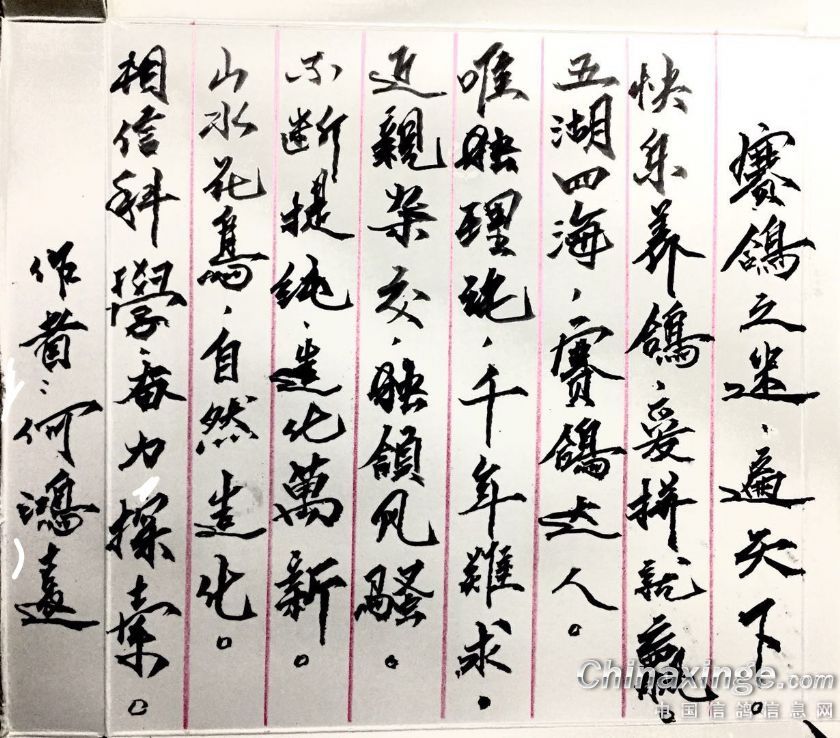 賽鴿之迷，遍天下。
快乐养鴿，爱拼就贏。
五湖四海，賽鴿达人。
唯独理纯，千年難求。
近親杂交，独領风騷。
不断提纯，造化萬新。
山水花鳥，自然造化。
相信科學，奋力探索。
作者：何鴻遠
Chinaxinge.com
中国信鸽信息网